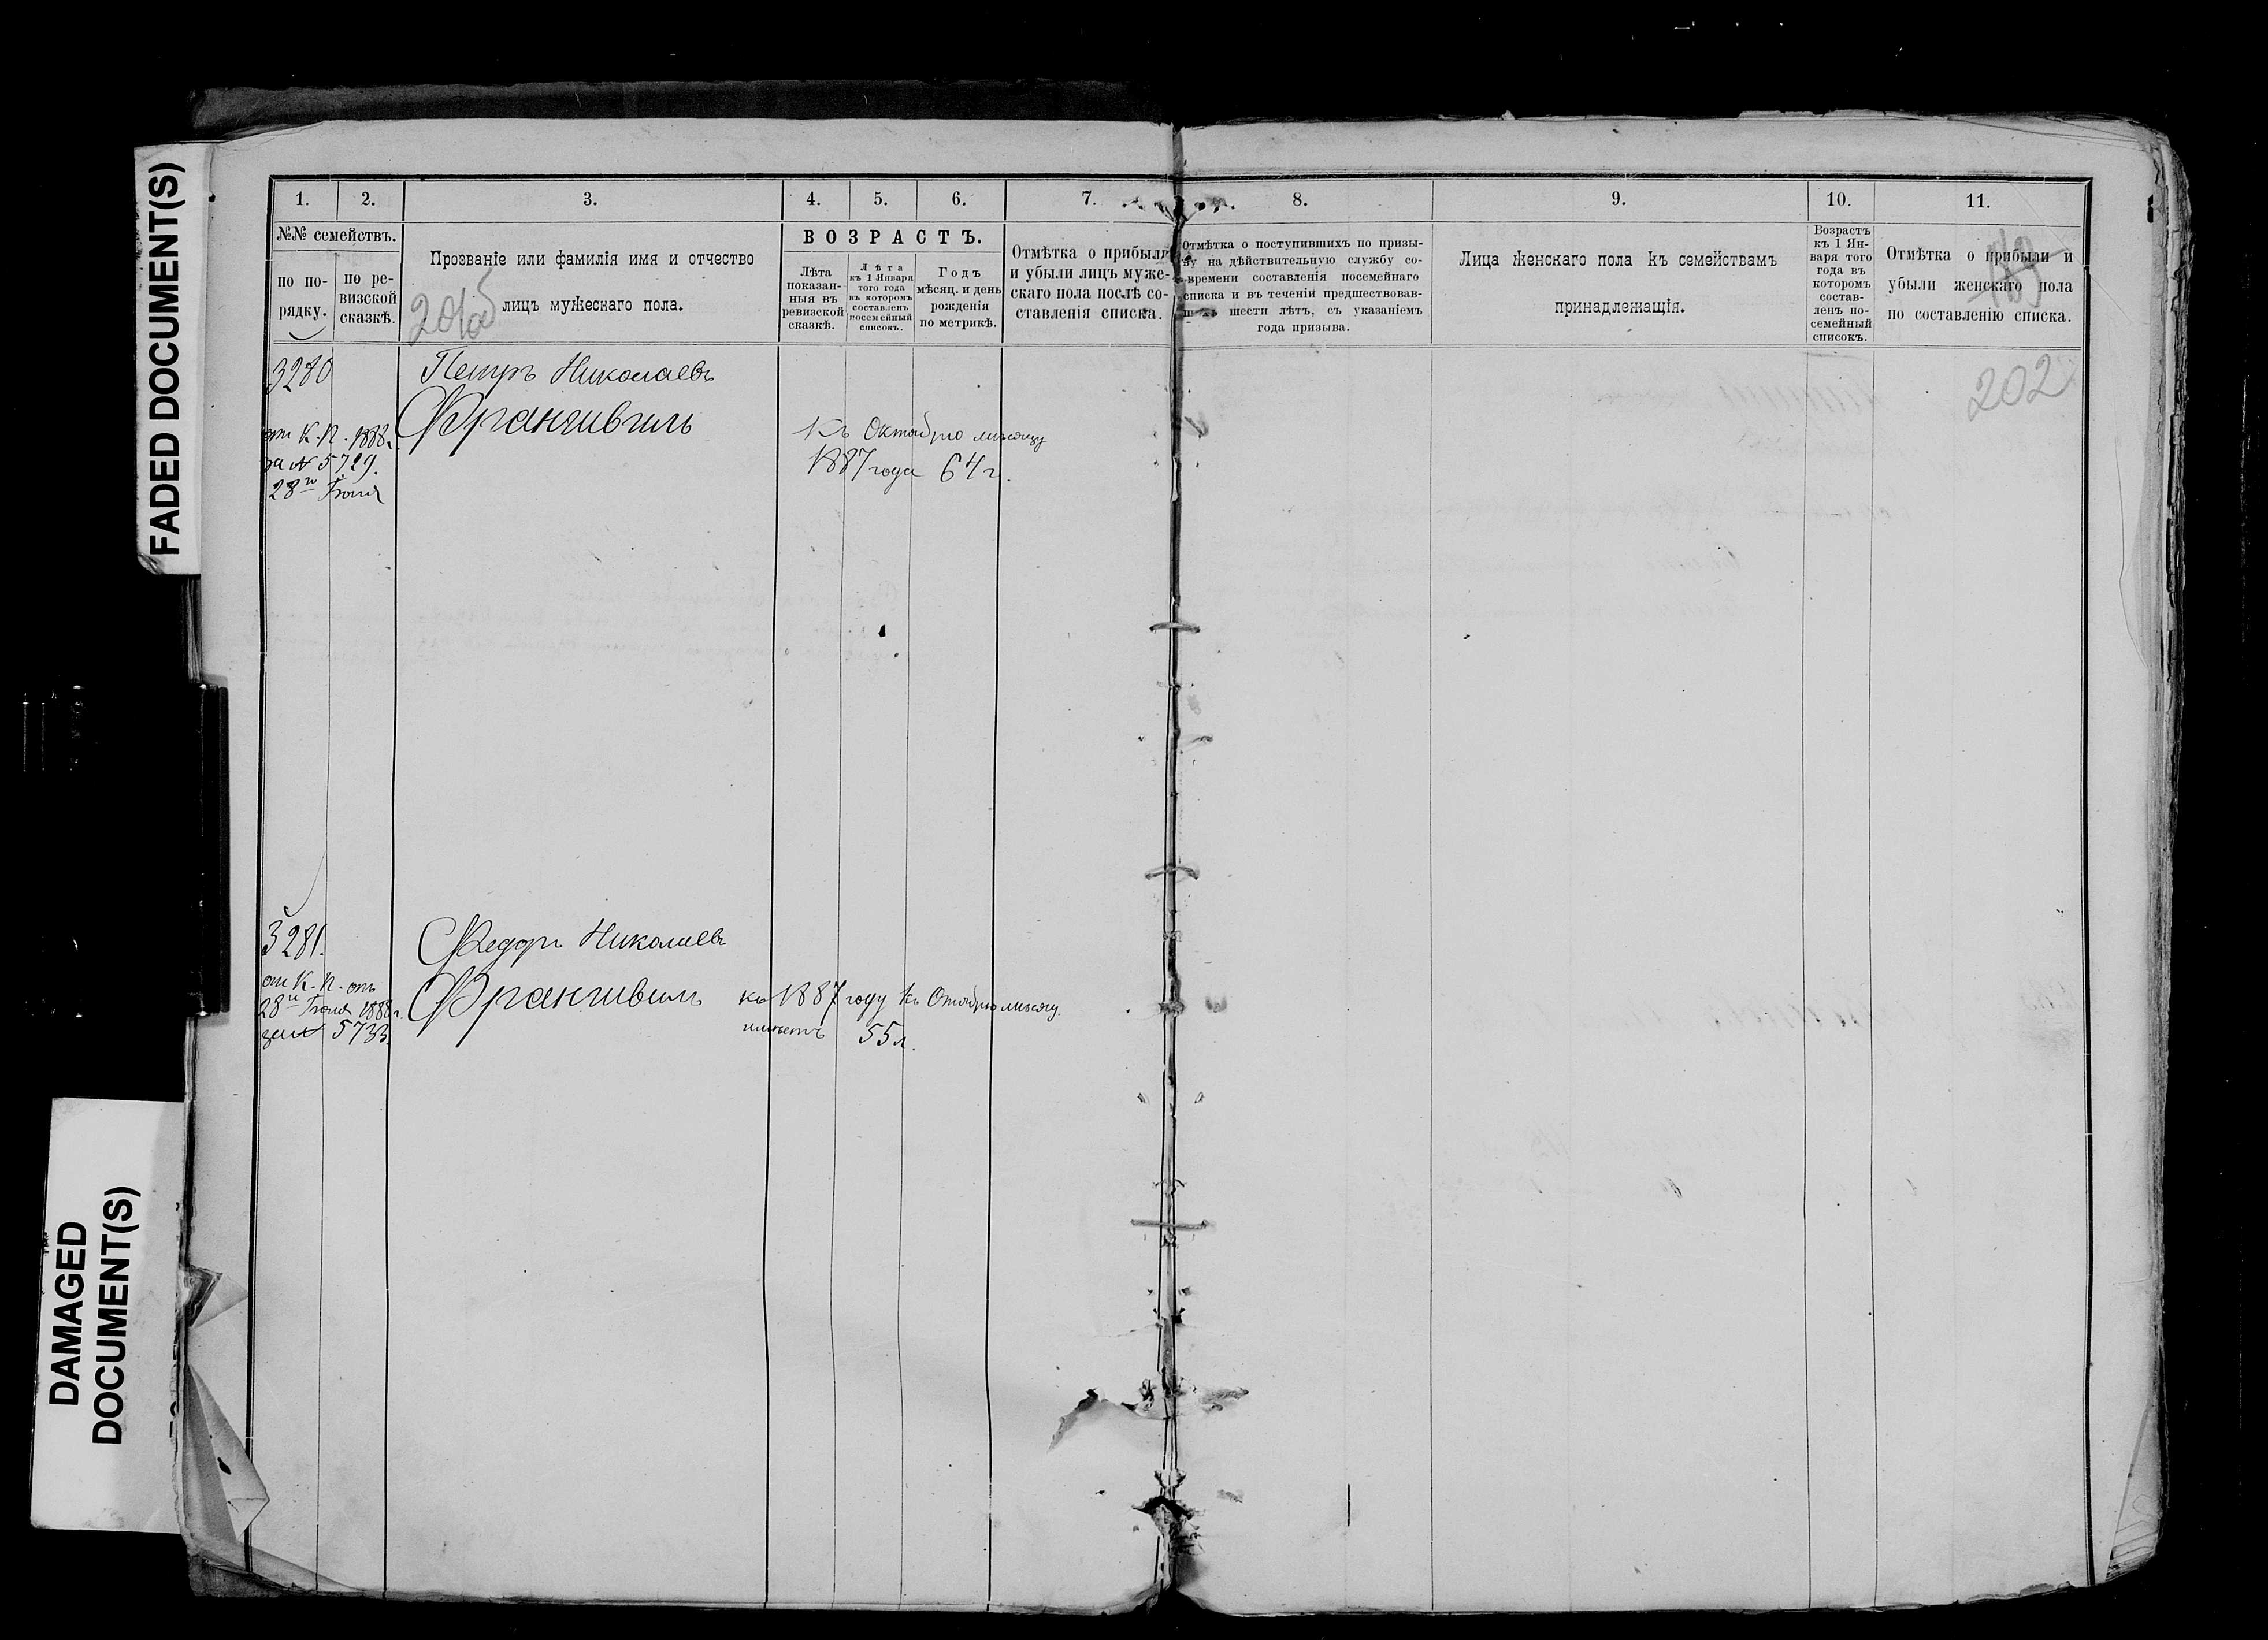 FADED DOCUMENT(S)
DAMAGED
DOCUMENT(S)
1. 2. 3. 4. 5. 6. 7. 8. 9. 10. 11.
№№ семействъ.
по по-
рядку.
по ре-
визской
сказкѣ.
Прозваніе или фамилія имя и отчество
лицъ мужескаго пола.
ВОЗРАСТЪ.
Лѣта
показан-
ныя въ
ревизской
сказкѣ.
Лѣта
къ 1 Января
того года
въ которомъ
составленъ
посемейный
списокъ.
Годъ
мѣсяц. и день
рожденія
по метрикѣ.
Отмѣтка о прибыли
и убыли лицъ муже-
скаго пола послѣ со-
ставленія списка.
Отмѣтка о поступившихъ по призы-
ву на дѣйствительную службу со-
времени составленія посемейнаго
списка и въ теченіи предшествовав-
шести лѣтъ, съ указаніемъ
года призыва.
Лица женскаго пола къ семействамъ
принадлежащія.
Возрастъ
къ 1 Ян-
варя того
года въ
которомъ
состав-
ленъ по-
семейный
списокъ.
Отмѣтка о прибыли и
убыли женскаго пола
по составленію списка.
202
3280
Петръ Николаевъ
Франгивиль
от К.П. 1888 г.
за № 5729.
28го Іюня
Къ Октябрю мѣсяцу
1887 года 64 г.
3281.
Федоръ Николаевъ
Франгивиль
от К.П. отъ
28го Іюня 1888 г.
за № 5733.
къ 1887 году къ Октябрю мѣсяцу
имѣетъ 55 л.